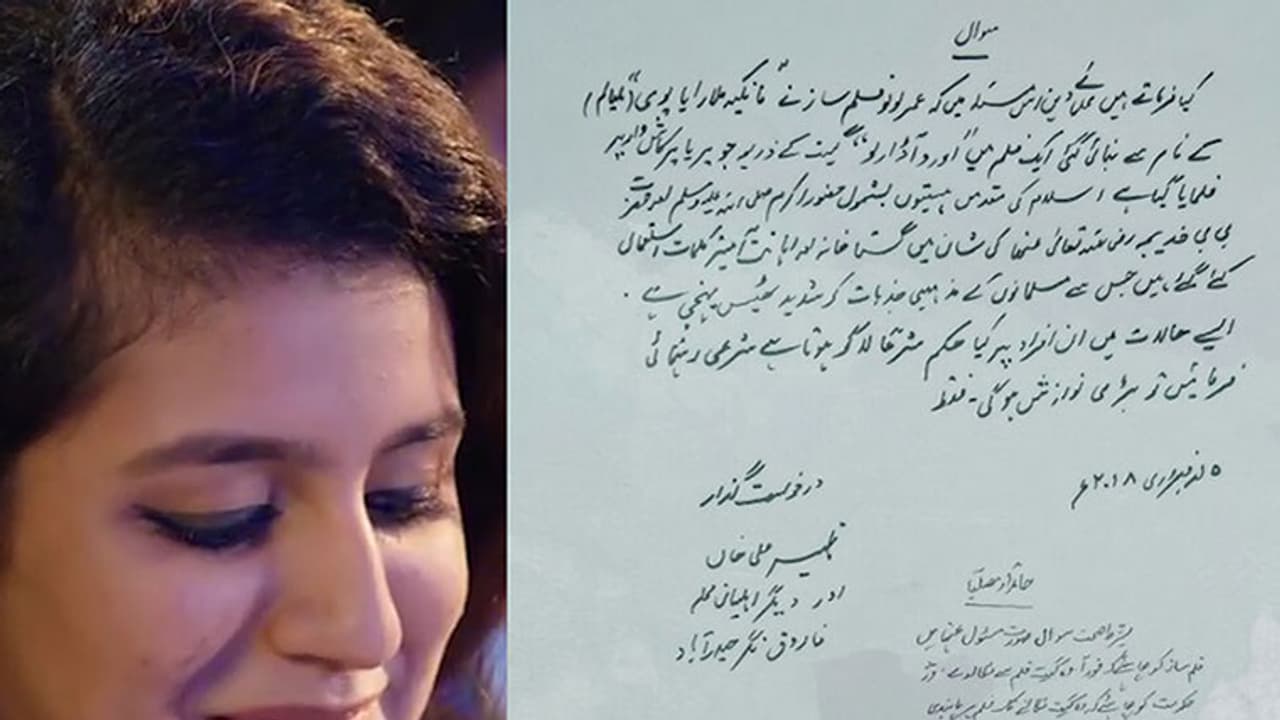 سوال
کیا فرماتے ہیں علمائے دین اس مسئلہ میں کہ عمر لولو فلم ساز نے "مانیکیہ ملارایا پوی" (ملیالم)
کے نام سے بنائی گئی ایک فلم میں "اورو آڈار لو" گیت کے ذریعہ جو پریا پرکاش واریر پر
فلمایا گیا ہے اسلام کی مقدس ہستیوں بشمول حضور اکرم صلی اللہ علیہ وسلم اور حضرت
بی بی خدیجہ رضی اللہ تعالیٰ عنہا کی شان میں گستاخانہ اور اہانت آمیز کلمات استعمال
کئے گئے ہیں جس سے مسلمانوں کے مذہبی جذبات کو شدید ٹھیس پہنچی ہے .
ایسے حالات میں ان افراد پر کیا حکم شرعاً لاگو ہوتا ہے شرعی رہنمائی
فرمائیں تو بڑی نوازش ہوگی - فقط
۵ فبروری ۲۰۱۸ء
درخواست گذار
ظہیر علی خاں
اور دیگر اہلیان محلہ
فاروق نگر حیدرآباد
حامداً و مصلیاً
بشرط صحت سوال صورت مسئول عنہا میں
فلم ساز کو چاہئے کہ فوراً وہ گیت فلم سے نکالدے ، اور
حکومت کو چاہئے کہ وہ گیت نکالنے تک فلم پر پابندی